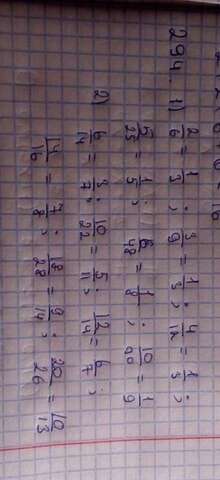 294. 1) 2/6 = 1/3; 3/9 = 1/3; 4/12 = 1/3;
5/25 = 1/5; 6/48 = 1/8; 10/90 = 1/9
2) 6/14 = 3/7; 10/22 = 5/11; 12/14 = 6/7;
14/16 = 7/8; 18/28 = 9/14; 20/26 = 10/13